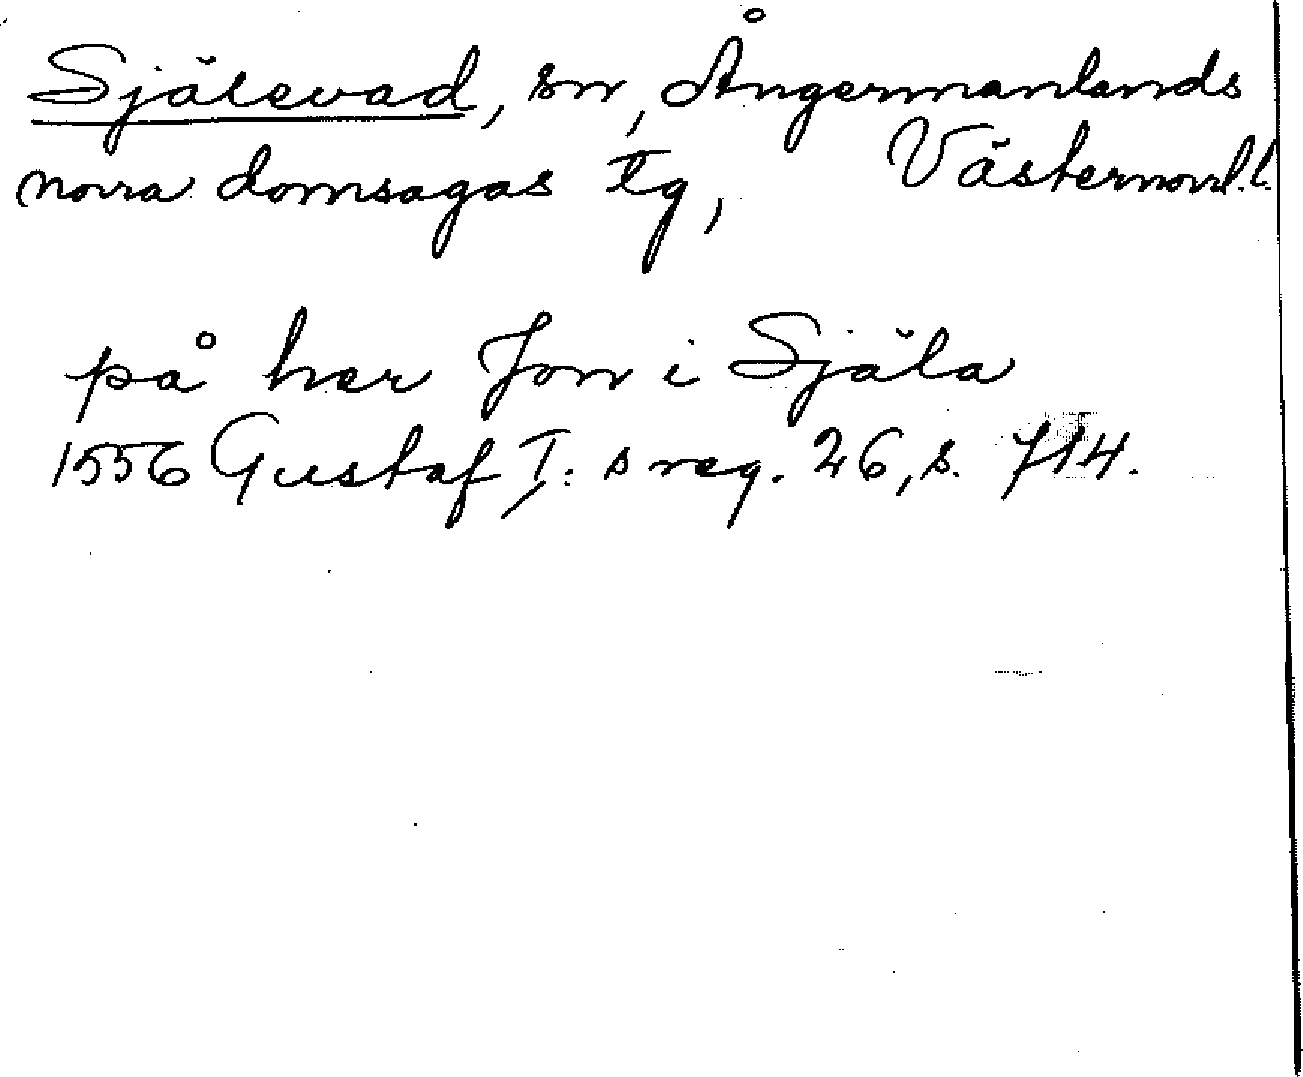 Själevad, sn, Ångermanlands
norra domsagas tg, Västernorrl.l.
på her Jon i Själa
1556 Gustaf I:s reg. 26, s. 714.